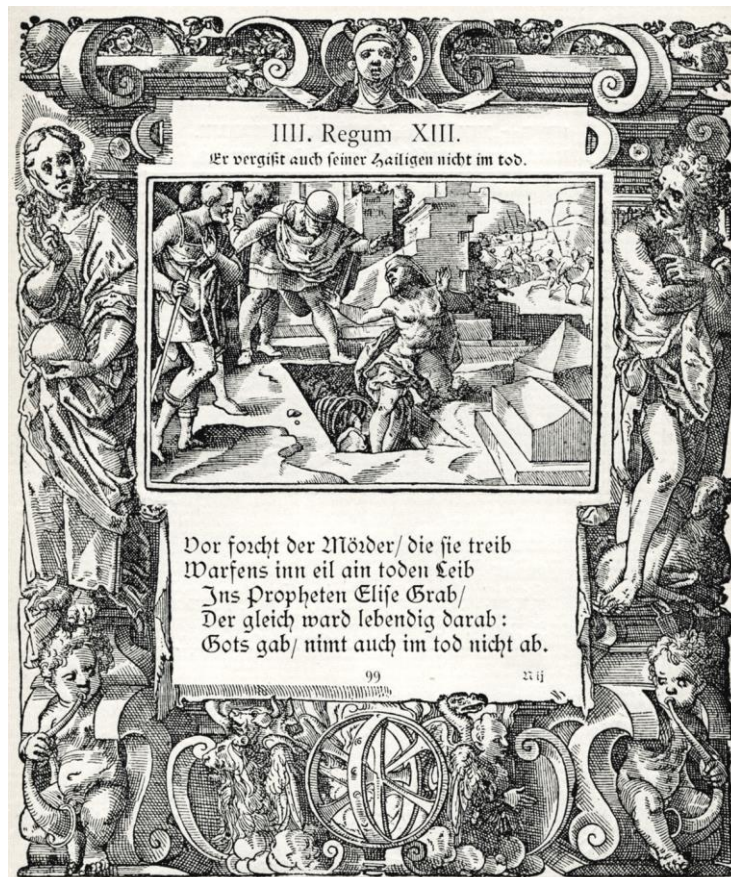 IIII. Regum XIII.
Er vergißt auch seiner Hailigen nicht im tod.
Vor forcht der Mörder/ die sie treib
Warfens inn eil ain toden Leib
Ins Propheten Elise Grab/
Der gleich ward lebendig darab:
Gots gab/ nimt auch im tod nicht ab.
99
N ij